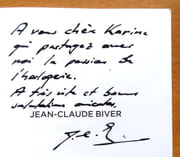 A vous chère Karine
qui partagez avec
moi la passion de
l'horlogerie.
A très vite et bonnes
salutations amicales.
JEAN-CLAUDE BIVER
J.C. B